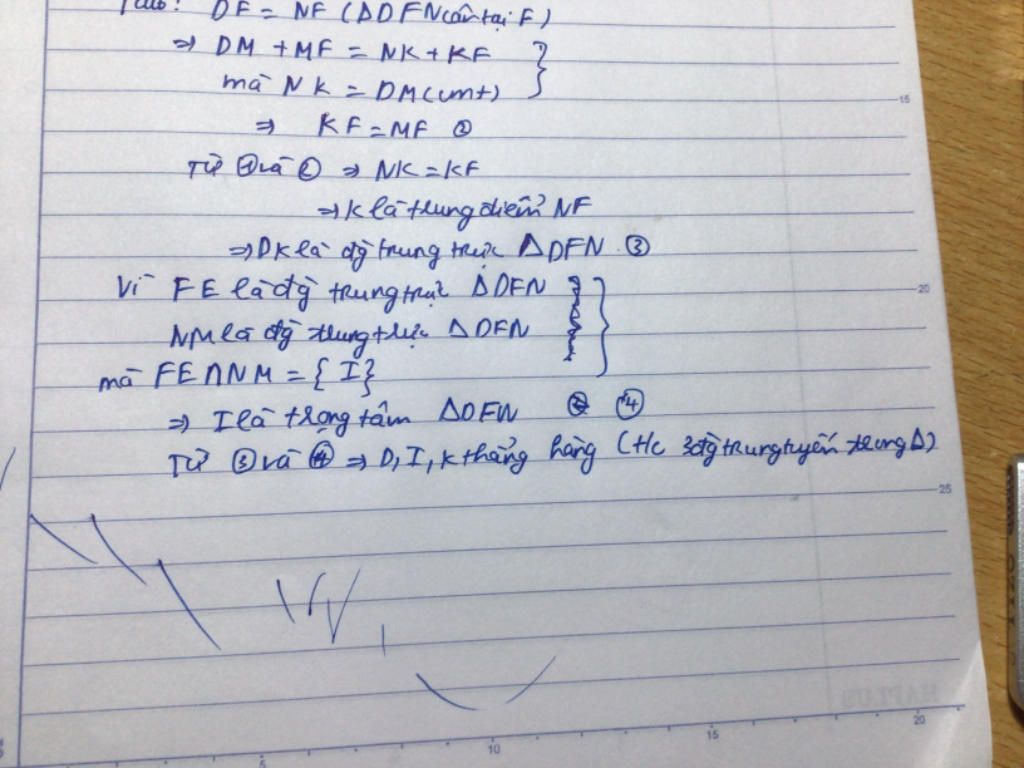 DF = NF (ΔDFN cân tại F)
⇒ DM + MF = NK + KF
mà NK = DM (cmt)
⇒ KF = MF ②
Từ ① và ② ⇒ NK = KF
⇒ K là trung điểm NF
⇒ DK là đg trung trực ΔDFN ③
Vì FE là đg trung trực ΔDFN
NM là đg trung trực ΔDFN
mà FE ∩ NM = { I }
⇒ I là trọng tâm ΔDFN ④
Từ ③ và ④ ⇒ D, I, K thẳng hàng (t/c 3 đg trung tuyến trong Δ)
15
20
25
5
10
15
20
HAPLUS